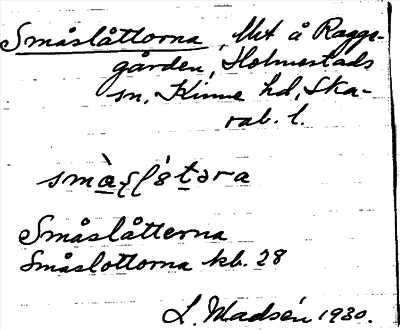 Småslåttorna, Mt å Ragge-
gården, Holmestads
sn, Kinne hd, Ska-
rab. l.
Småslåtterna
Småslottorna kb. 28
L. Madsén 1930.